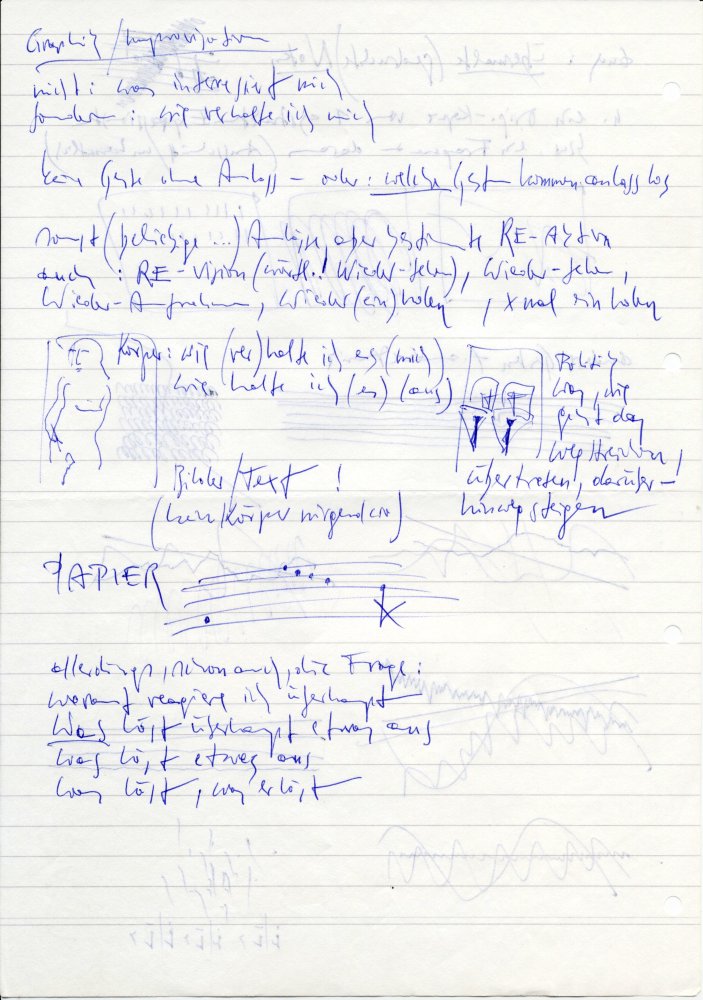 Graphik/Improvisation
nicht: was interessiert mich
sondern: wie verhalte ich mich
keine Geste ohne Anlass – oder: welche Gesten kommen anlasslos
sonst (beliebige ...) Anlässe, aber bestimmte RE-Aktion
auch: RE-Vision (wörtl.! Wieder-sehen), Wieder-sehen,
Wieder-Aufnahme, Wieder(ein)holen, x mal einholen
Körper: wie (ver)halte ich es (mich)
wie halte ich (es) (aus)
Politik
was, wie
geht das
wegstreichen!
übertreten!, darüber–
hinwegsteigen
Bilder/Text!
(kein Körper nirgendwo)
PAPIER
allerdings, schon auch, die Frage:
worauf reagiere ich überhaupt
Was löst überhaupt etwas aus
was löst etwas aus
was löst, was erlöst